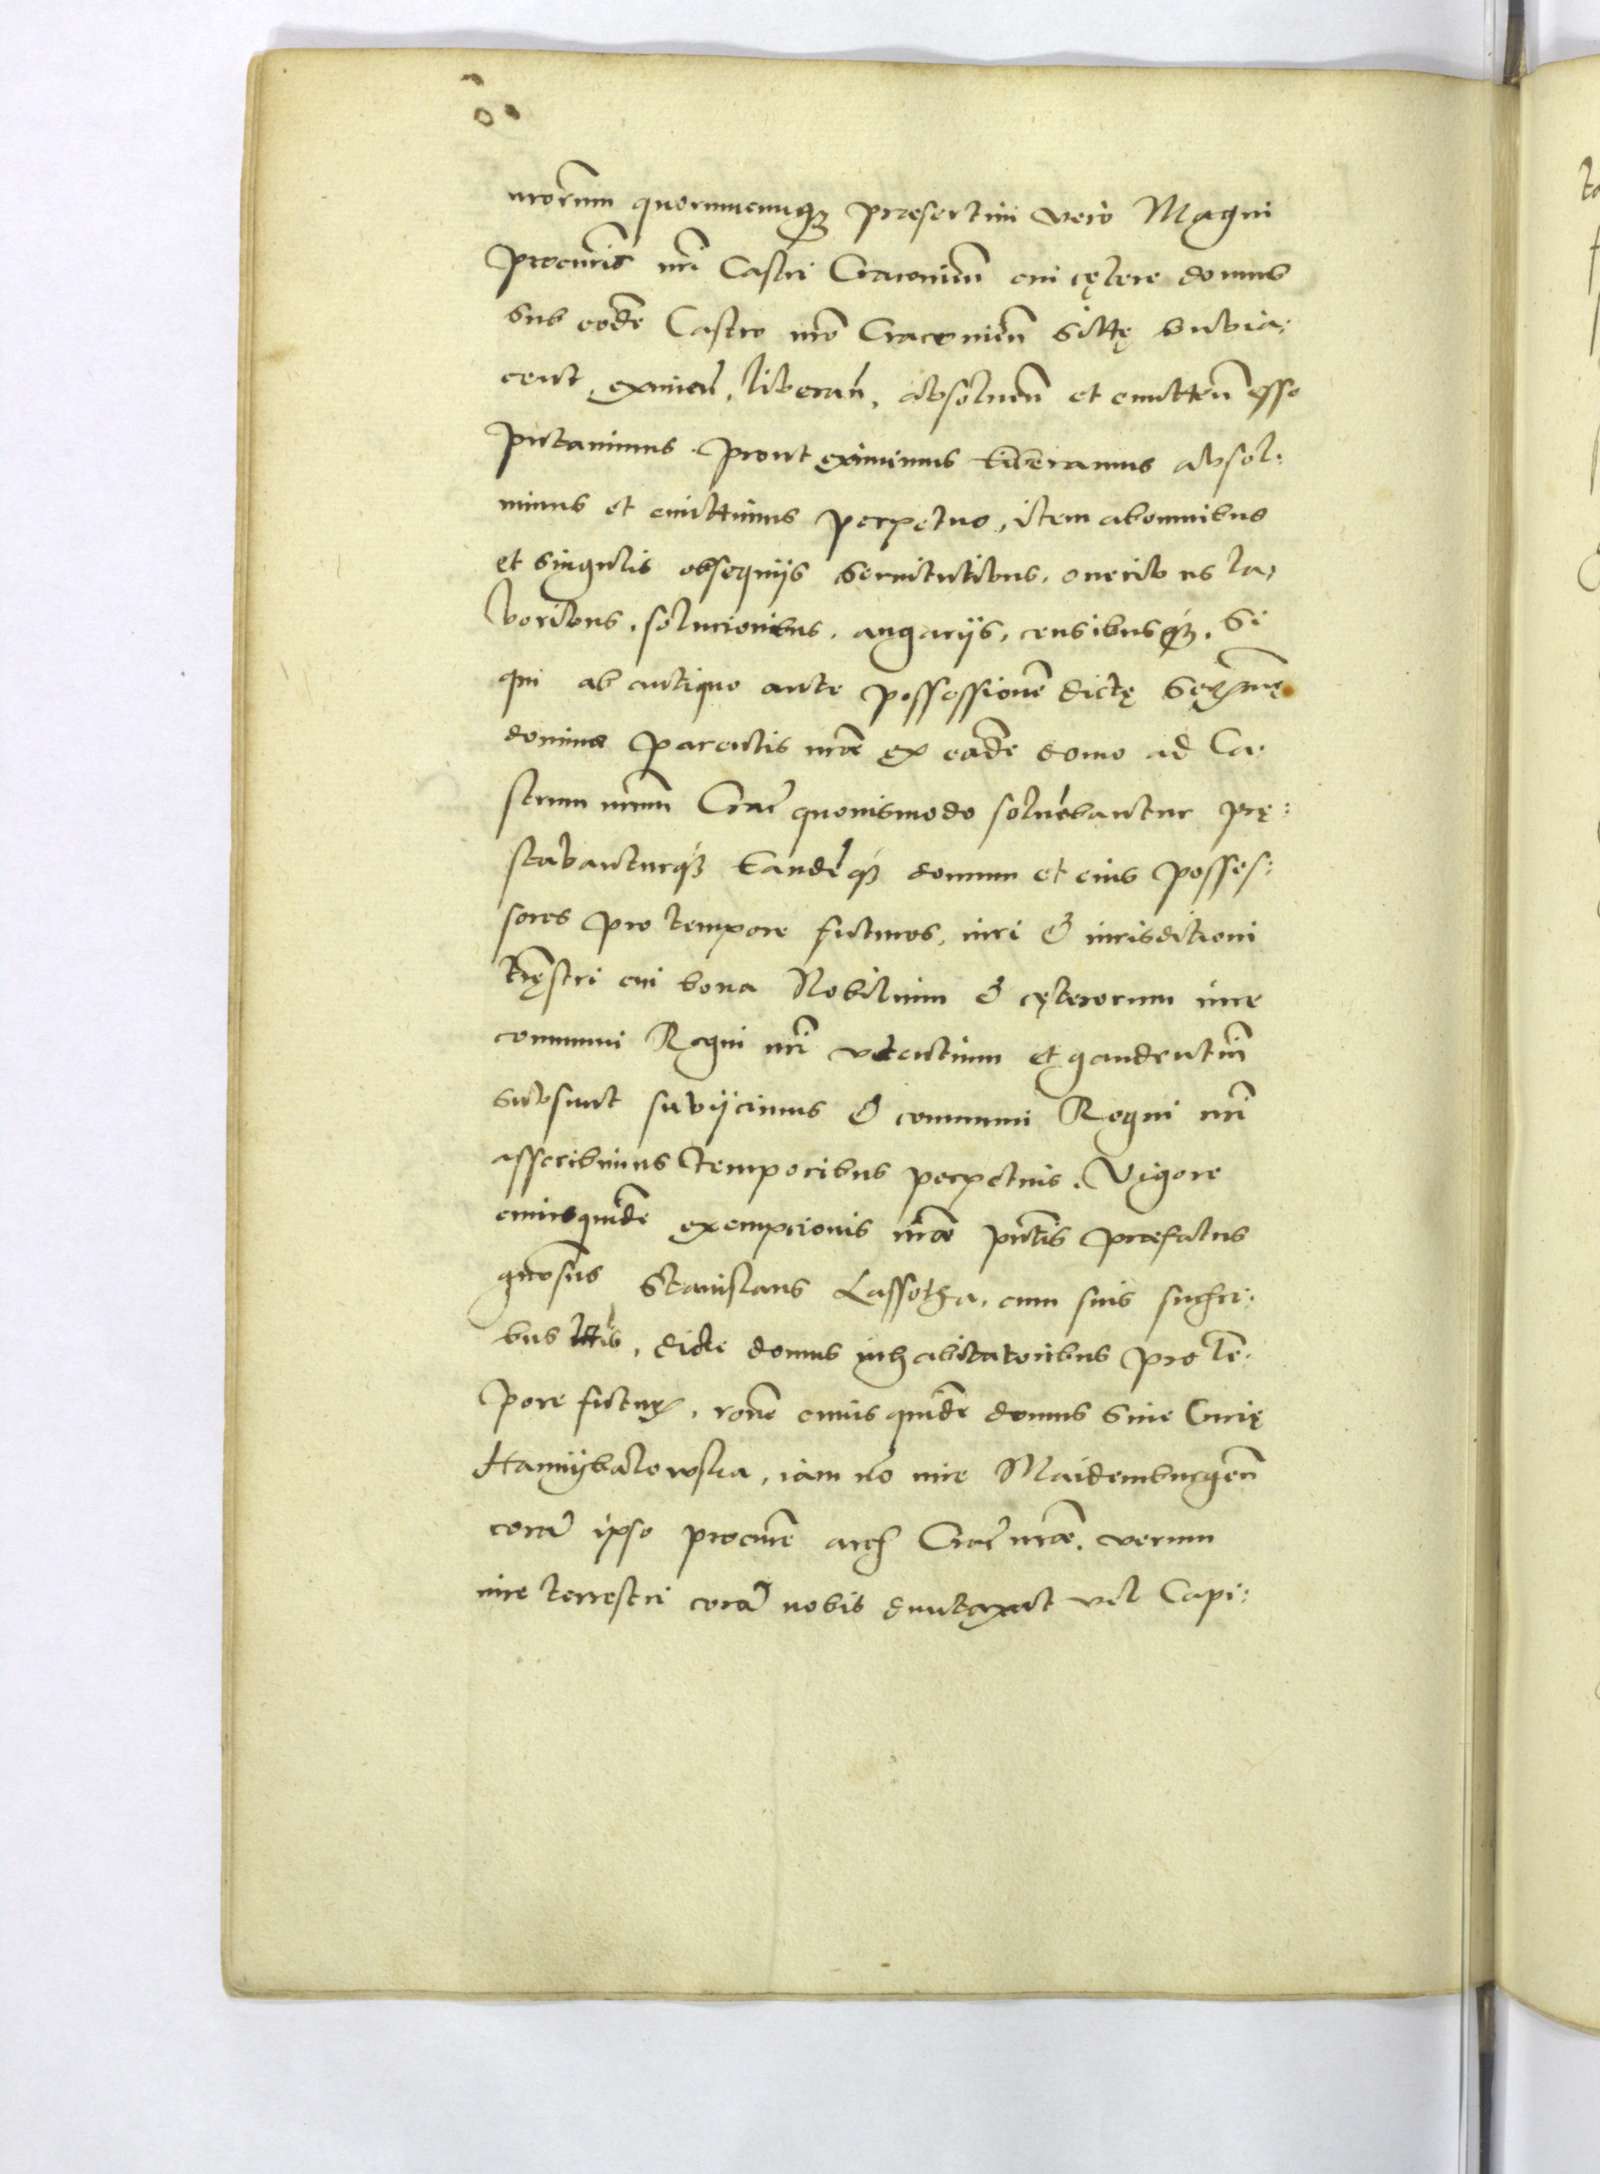 nrorum quorumcunq3 præsertim vero Magni
procuris nri Castri Cracouien cui cętere domus
sub eode Castro nro Cracouien sittę subia:
cent, eximen, liberan, absoluen et emitten esse
putauimus. prout eximimus liberamus absol:
uimus et emittimus perpetuo, item ab omnibus
et singulis obsequijs seruitutibus, oneribus la:
boribus, solucionibus, angarijs, censibusq3, Si
qui ab antiquo ante possessione dictę Serme
domine parentis nræ ex eade domo ad Ca:
strum nrum Crac quouismodo soluebantur prę:
stabanturq3 Eandeq3 domum et eius posses:
sores pro tempore futuros, iuri & iurisditioni
trestri cui bona Nobilium & cęterorum iure
communi Regni nri vtentium et gaudentium
subsunt subijcimus & communi Regni nri
asscribimus temporibus perpetuis. Vigore
cuiusquide exempcionis nræ pntis præfatus
gnosus Stanislaus Lassotha, cum suis successori:
bus lttis, dicte domus inhabitatoribus pro te:
pore futur, rone cuiusquide domus Siue Curię
Hamijbalowska, iam no iure Maidemburgen
cora ipso procure arcs Crac nræ, verum
iure terrestri cora nobis duntaxat vel Capi: